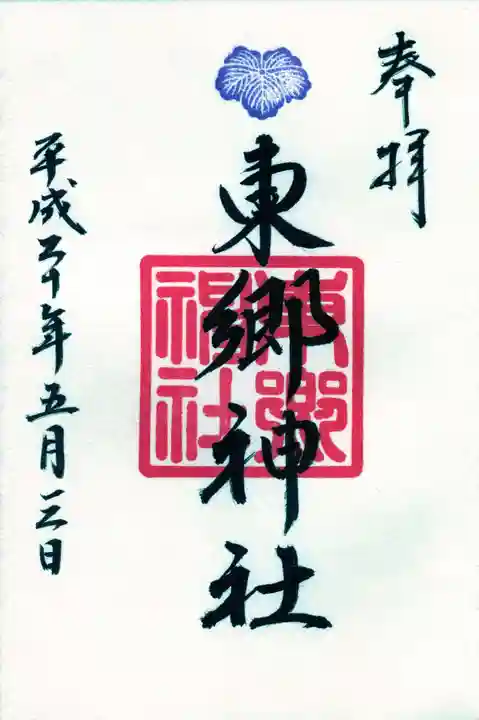 奉拝
東郷神社
東郷神社
平成二十年五月三日